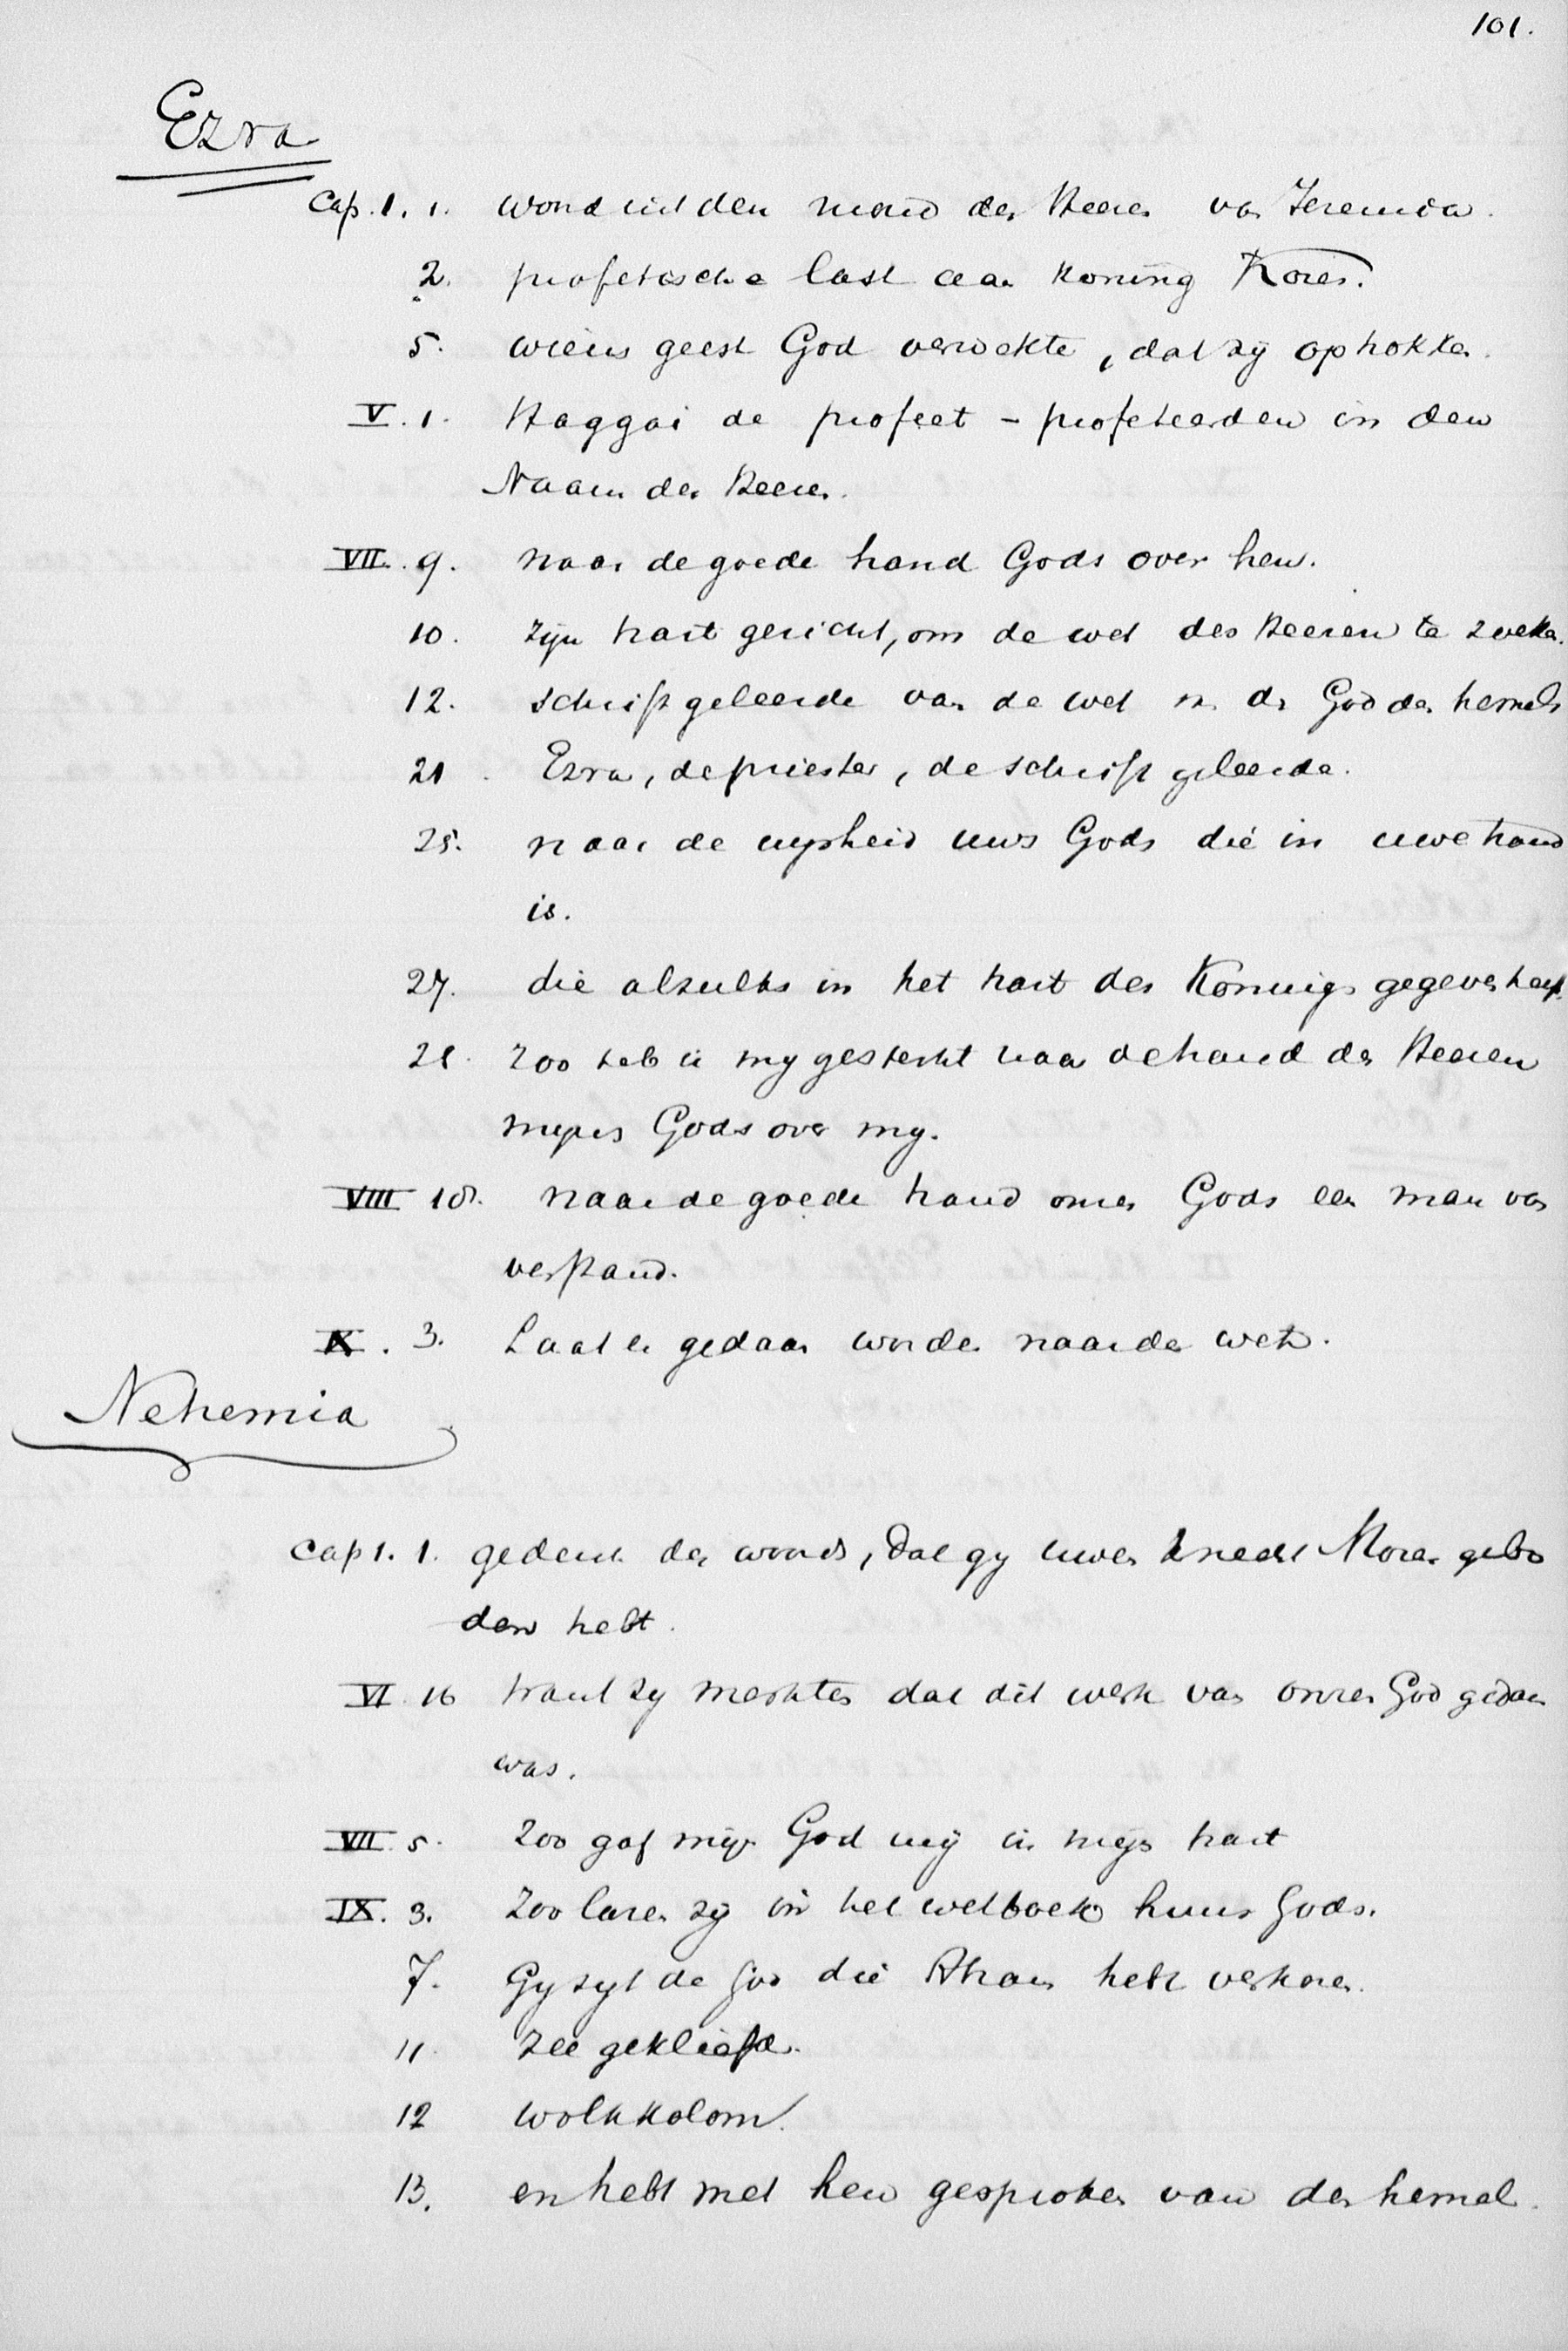 101.
Ezra
Cap. 1. 1. woord uit den mond des Heeren van Jeremia.
2. profetische last aan Koning Kores.
5. wiens geest God verwekte, dat zij optrokken.
V. 1. Haggai de profeet - profeteerden in den
Naam des Heeren.
VII. 9. naar de goede hand Gods over hem.
10. zijn hart gericht, om de wet des Heeren te zoeken.
12. schriftgeleerde van de wet v. d. God des hemels
21. Ezra, de priester, de schriftgeleerde.
25. naar de wijsheid uws Gods die in uwe hand
is.
27. die alzulks in het hart des Konings gegeven heeft.
28. Zoo heb ik mij gesterkt naar de hand des Heeren
mijns Gods over mij.
VIII 18. naar de goede hand onzes Gods een man van
verstand.
X. 3. Laat er gedaan worden naar de wet.
Nehemia
Cap 1. 1. gedenk des woords, dat gij uwen knecht Mozes gebo
den hebt.
VI. 16 want zij merkten dat dit werk van onzen God gedaan
was.
VII. 5. Zoo gaf mijn God mij in mijn hart
IX. 3. Zoo lazen zij in het wetboek huns Gods.
7. Gij zijt de God die Abram hebt verkoren.
11. Zee gekliefd.
12 wolkkolom.
13. en hebt met hen gesproken van den hemel.